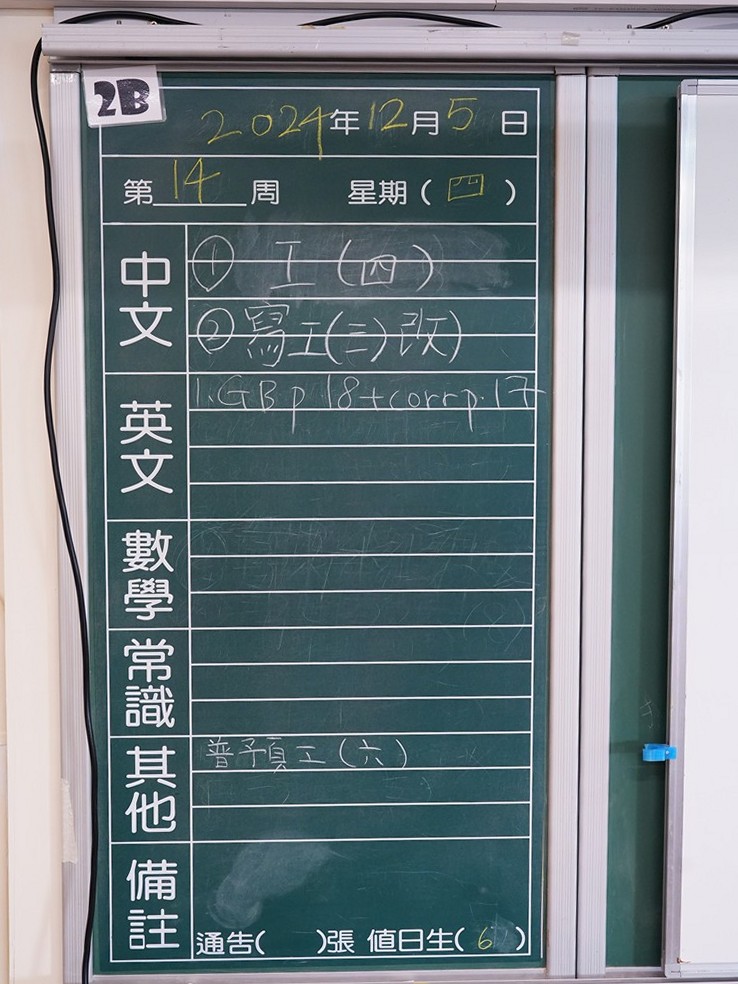 2B
2024年12月5日
第14周 星期(四)
中文
① 工(四)
② 寫工(三)改)
英文
1. GB p.18 + corr p.17
數學
常識
其他
普預工(六)
備註
通告( )張 值日生(6)